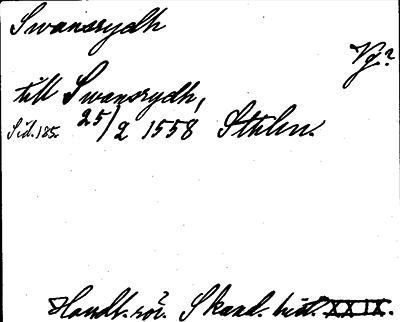 Swansrydh
Vg?
till Swansrydh,
Sid. 185. 25/2 1558 Sthlm.
Handl. rör. Skand. hist. XXIX.